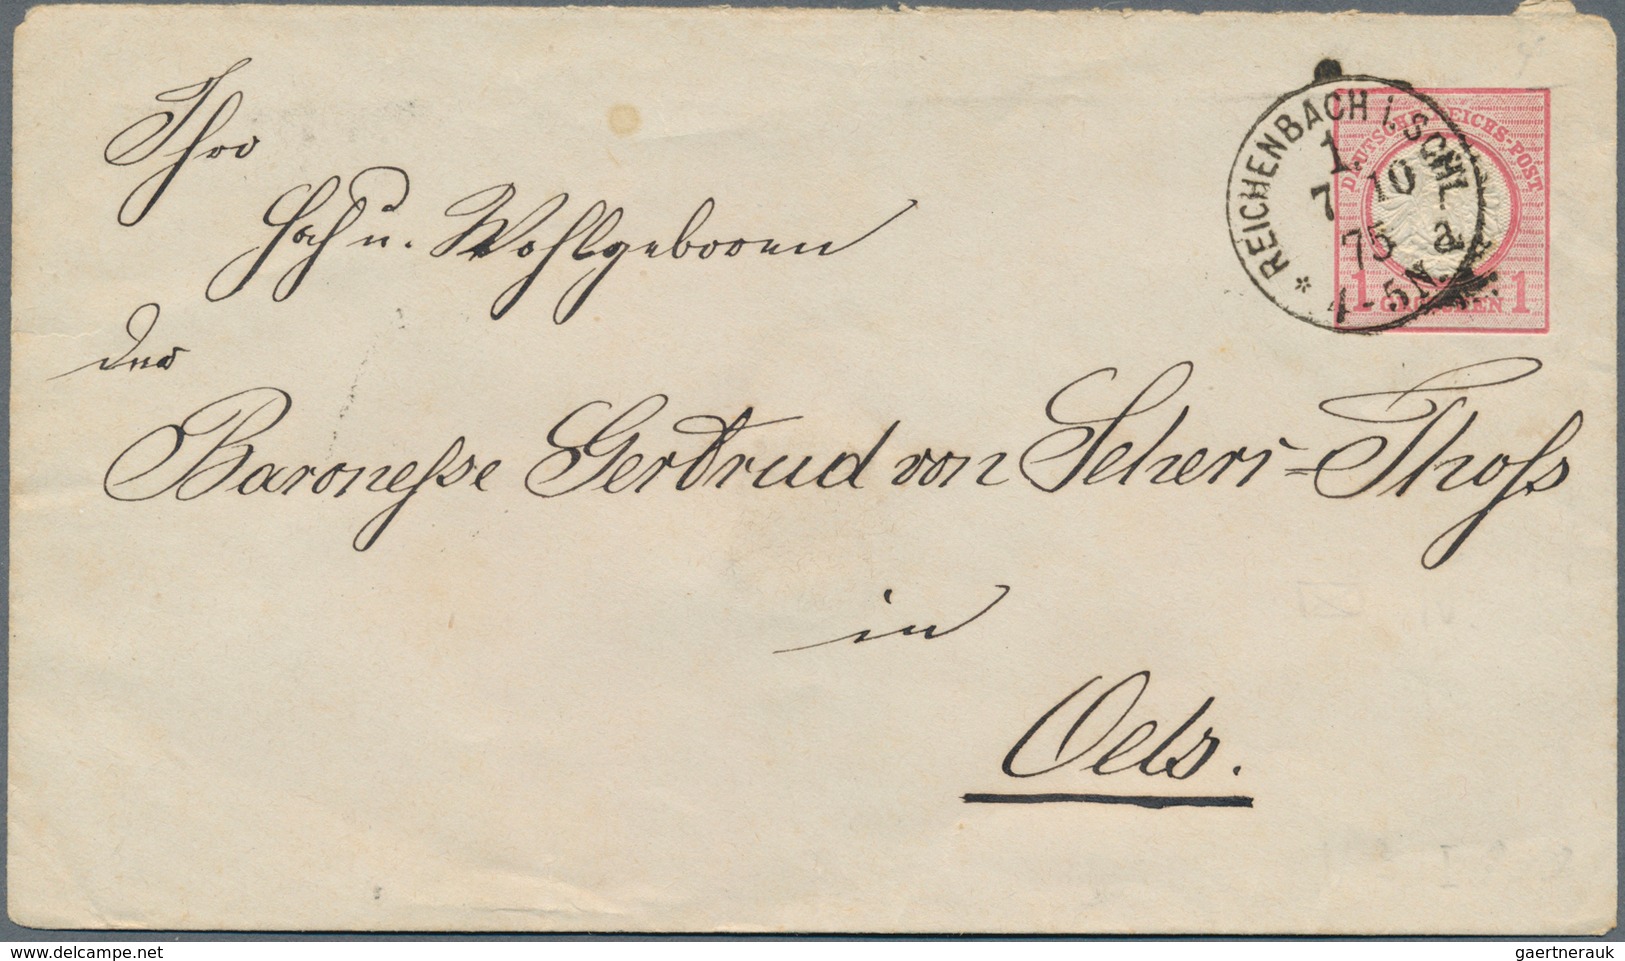 Ihro
Hoch u. Wohlgeboren
der
Baronesse Gertrud von Scherr=Thoss
in
Oels.
REICHENBACH i. SCHL. *
1.
7 10
73
4-5 N.
DEUTSCHE REICHS-POST
1 GROSCHEN 1
www.delcampe.net
gaertnerauk